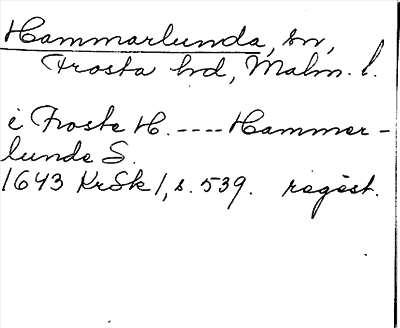 Hammarlunda, sn,
Frosta hd, Malm. l.
i Froste H. ---- Hammer-
lunde S.
1643 KrSk 1, s. 539. regest.